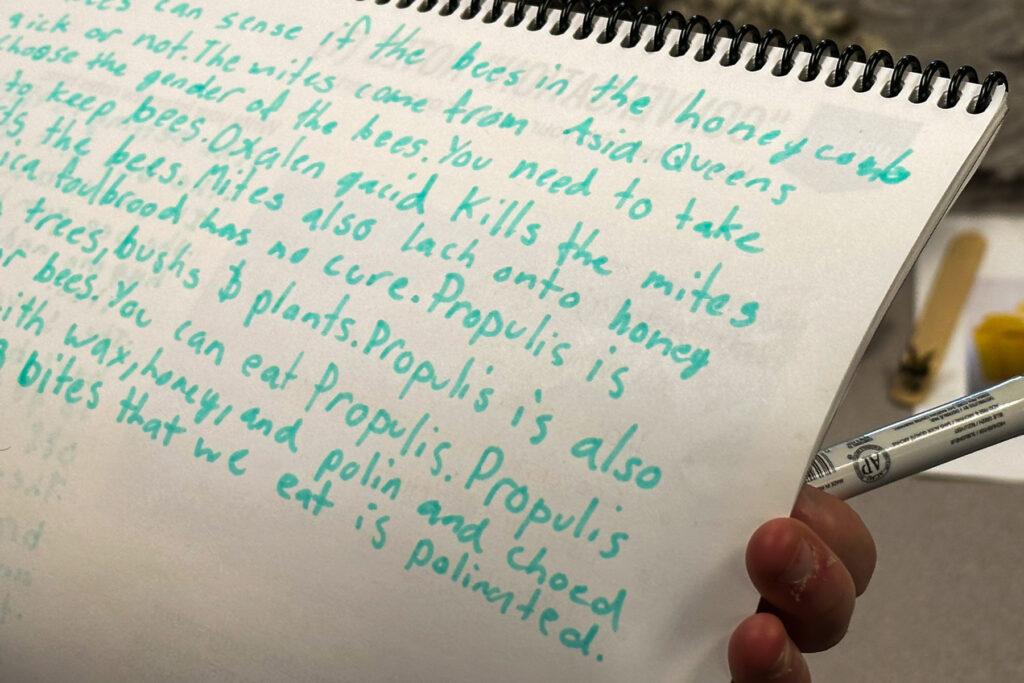 can sense if the bees in the honey comb
or not. The mites come from Asia. Queens
choose the gender of the bees. You need to take
to keep bees. Oxalen gacid Kills the mites
the bees. Mites also lach onto honey
foulbrood has no cure. Propulis is
trees, bushs $ plants. Propulis is also
bees. You can eat Propulis. Propulis
with wax, honey, and polin and choed
bites that we eat is polinated.
AP